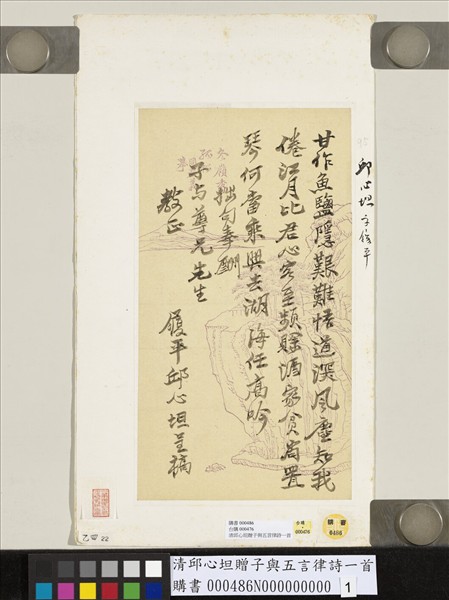 甘作魚鹽隱艱難悟道深風塵知我
倦江月比君心客至頻賒酒家貧尚置
琴何當乘興去湖海任高吟
拙句奉酬
子与尊兄先生
教正
履平邱心坦呈稿
邱心坦字履平
乙 22
購書 000486
台購 000476
清邱心坦贈子與五言律詩一首
台購
000476
購書
0486
清邱心坦贈子與五言律詩一首
購書 000486N000000000
1